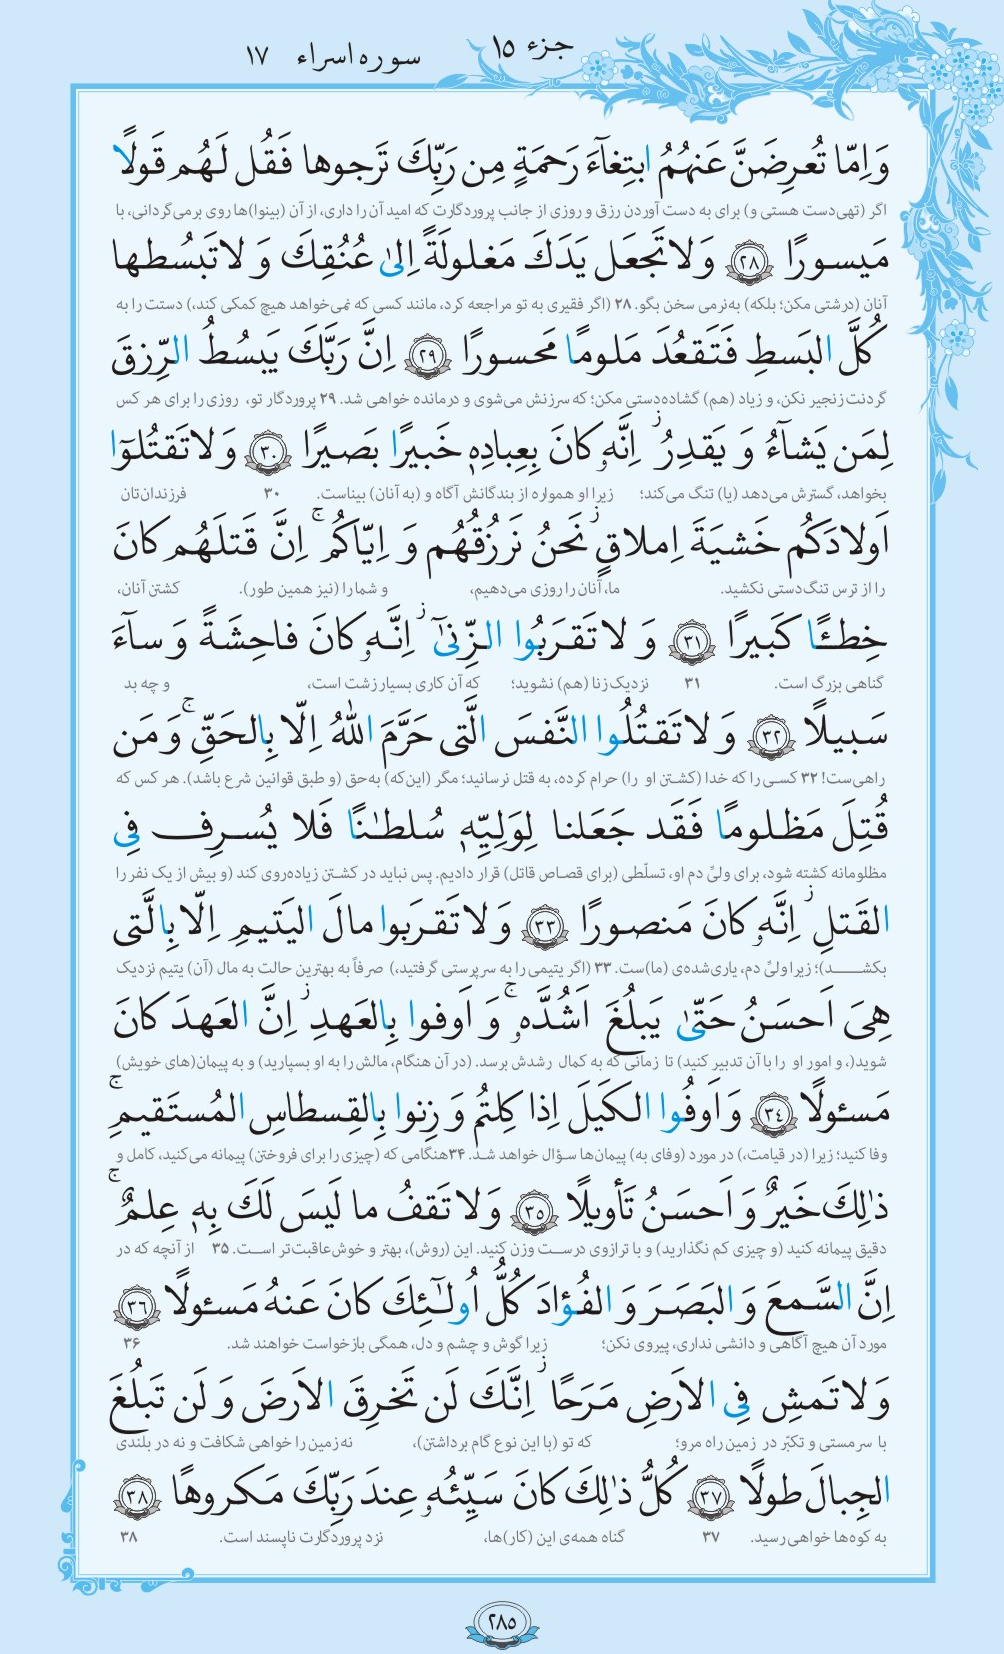 جزء ۱۵
سوره اسراء ۱۷
وَ اِمّا تُعرِضَنَّ عَنهُمُ ابتِغآءَ رَحمَةٍ مِن رَبِّكَ تَرجوها فَقُل لَهُم قَولًا
اگر (تهی‌دست هستی و) برای به دست آوردن رزق و روزی از جانب پروردگارت که امید آن را داری، از آن (بینوا)ها روی برمی‌گردانی، با
مَیسورًا ﴿۲۸﴾ وَ لا تَجعَل یَدَكَ مَغلولَةً اِلیٰ عُنُقِكَ وَ لا تَبسُطها
آنان (درشتی مکن؛ بلکه) به‌نرمی سخن بگو. ۲۸ (اگر فقیری به تو مراجعه کرد، مانند کسی که نمی‌خواهد هیچ کمکی کند،) دستت را به
كُلَّ البَسطِ فَتَقعُدَ مَلومًا مَحسورًا ﴿۲۹﴾ اِنَّ رَبَّكَ یَبسُطُ الرِّزقَ
گردنت زنجیر نکن، و زیاد (هم) گشاده‌دستی مکن؛ که سرزنش می‌شوی و درمانده خواهی شد. ۲۹ پروردگار تو، روزی را برای هر کس
لِمَن یَشآءُ وَ یَقدِرُ ز اِنَّهٗ كانَ بِعِبادِهٖ خَبیرًا بَصیرًا ﴿۳۰﴾ وَ لا تَقتُلوٓا
بخواهد، گسترش می‌دهد (یا) تنگ می‌کند؛ زیرا او همواره از بندگانش آگاه و (به آنان) بیناست. ۳۰ فرزندان‌تان
اَولادَكُم خَشیَةَ اِملاقٍ ز نَحنُ نَرزُقُهُم وَ اِیّاكُم ج اِنَّ قَتلَهُم كانَ
را از ترس تنگ‌دستی نکشید. ما، آنان را روزی می‌دهیم، و شما را (نیز همین طور). کشتن آنان،
خِطـًٔا كَبیرًا ﴿۳۱﴾ وَ لا تَقرَبُوا الزِّنیٰٓ ز اِنَّهٗ كانَ فاحِشَةً وَ سآءَ
گناهی بزرگ است. ۳۱ نزدیک زنا (هم) نشوید؛ که آن کاری بسیار زشت است، و چه بد
سَبیلًا ﴿۳۲﴾ وَ لا تَقتُلُوا النَّفسَ الَّتی حَرَّمَ اللهُ اِلّا بِالحَقِّ ج وَ مَن
راهی‌ست! ۳۲ کسی را که خدا (کشتن او را) حرام کرده، به قتل نرسانید؛ مگر (این‌که) به‌حق (و طبق قوانین شرع باشد). هر کس که
قُتِلَ مَظلومًا فَقَد جَعَلنا لِوَلِیِّهٖ سُلطـٰنًا فَلا یُسرِف فِی
مظلومانه کشته شود، برای ولیّ دم او، تسلّطی (برای قصاص قاتل) قرار دادیم. پس نباید در کشتن زیاده‌روی کند (و بیش از یک نفر را
القَتلِ ز اِنَّهٗ كانَ مَنصورًا ﴿۳۳﴾ وَ لا تَقرَبوا مالَ الیَتیمِ اِلّا بِالَّتی
بکشد)؛ زیرا ولیّ دم، یاری‌شده‌ی (ما)ست. ۳۳ (اگر یتیمی را به سرپرستی گرفتید،) صرفاً به بهترین حالت به مال (آن) یتیم نزدیک
هِیَ اَحسَنُ حَتّیٰ یَبلُغَ اَشُدَّهٗ ج وَ اَوفوا بِالعَهدِ ز اِنَّ العَهدَ كانَ
شوید(، و امور او را با آن تدبیر کنید) تا زمانی که به کمال رشدش برسد. (در آن هنگام، مالش را به او بسپارید) و به پیمان(های خویش)
مَسئولًا ﴿۳۴﴾ وَ اَوفُوا الكَیلَ اِذا كِلتُم وَ زِنوا بِالقِسطاسِ المُستَقیمِ ج
وفا کنید؛ زیرا (در قیامت،) در مورد (وفای به) پیمان‌ها سؤال خواهد شد. ۳۴هنگامی که (چیزی را برای فروختن) پیمانه می‌کنید، کامل و
ذٰلِكَ خَیرٌ وَ اَحسَنُ تَأویلًا ﴿۳۵﴾ وَ لا تَقفُ ما لَیسَ لَكَ بِهٖ عِلمٌ ج
دقیق پیمانه کنید (و چیزی کم نگذارید) و با ترازوی درست وزن کنید. این (روش)، بهتر و خوش‌عاقبت‌تر است. ۳۵ از آنچه که در
اِنَّ السَّمعَ وَ البَصَرَ وَ الفُؤادَ كُلُّ اُولـٰٓئِكَ كانَ عَنهُ مَسئولًا ﴿۳۶﴾
مورد آن هیچ آگاهی و دانشی نداری، پیروی نکن؛ زیرا گوش و چشم و دل، همگی بازخواست خواهند شد. ۳۶
وَ لا تَمشِ فِی الاَرضِ مَرَحًا ز اِنَّكَ لَن تَخرِقَ الاَرضَ وَ لَن تَبلُغَ
با سرمستی و تکبّر در زمین راه مرو؛ که تو (با این نوع گام برداشتن)، نه زمین را خواهی شکافت و نه در بلندی
الجِبالَ طولًا ﴿۳۷﴾ كُلُّ ذٰلِكَ كانَ سَیِّئُهٗ عِندَ رَبِّكَ مَكروهًا ﴿۳۸﴾
به کوه‌ها خواهی رسید. ۳۷ گناه همه‌ی این (کار)ها، نزد پروردگارت ناپسند است. ۳۸
۲۸۵